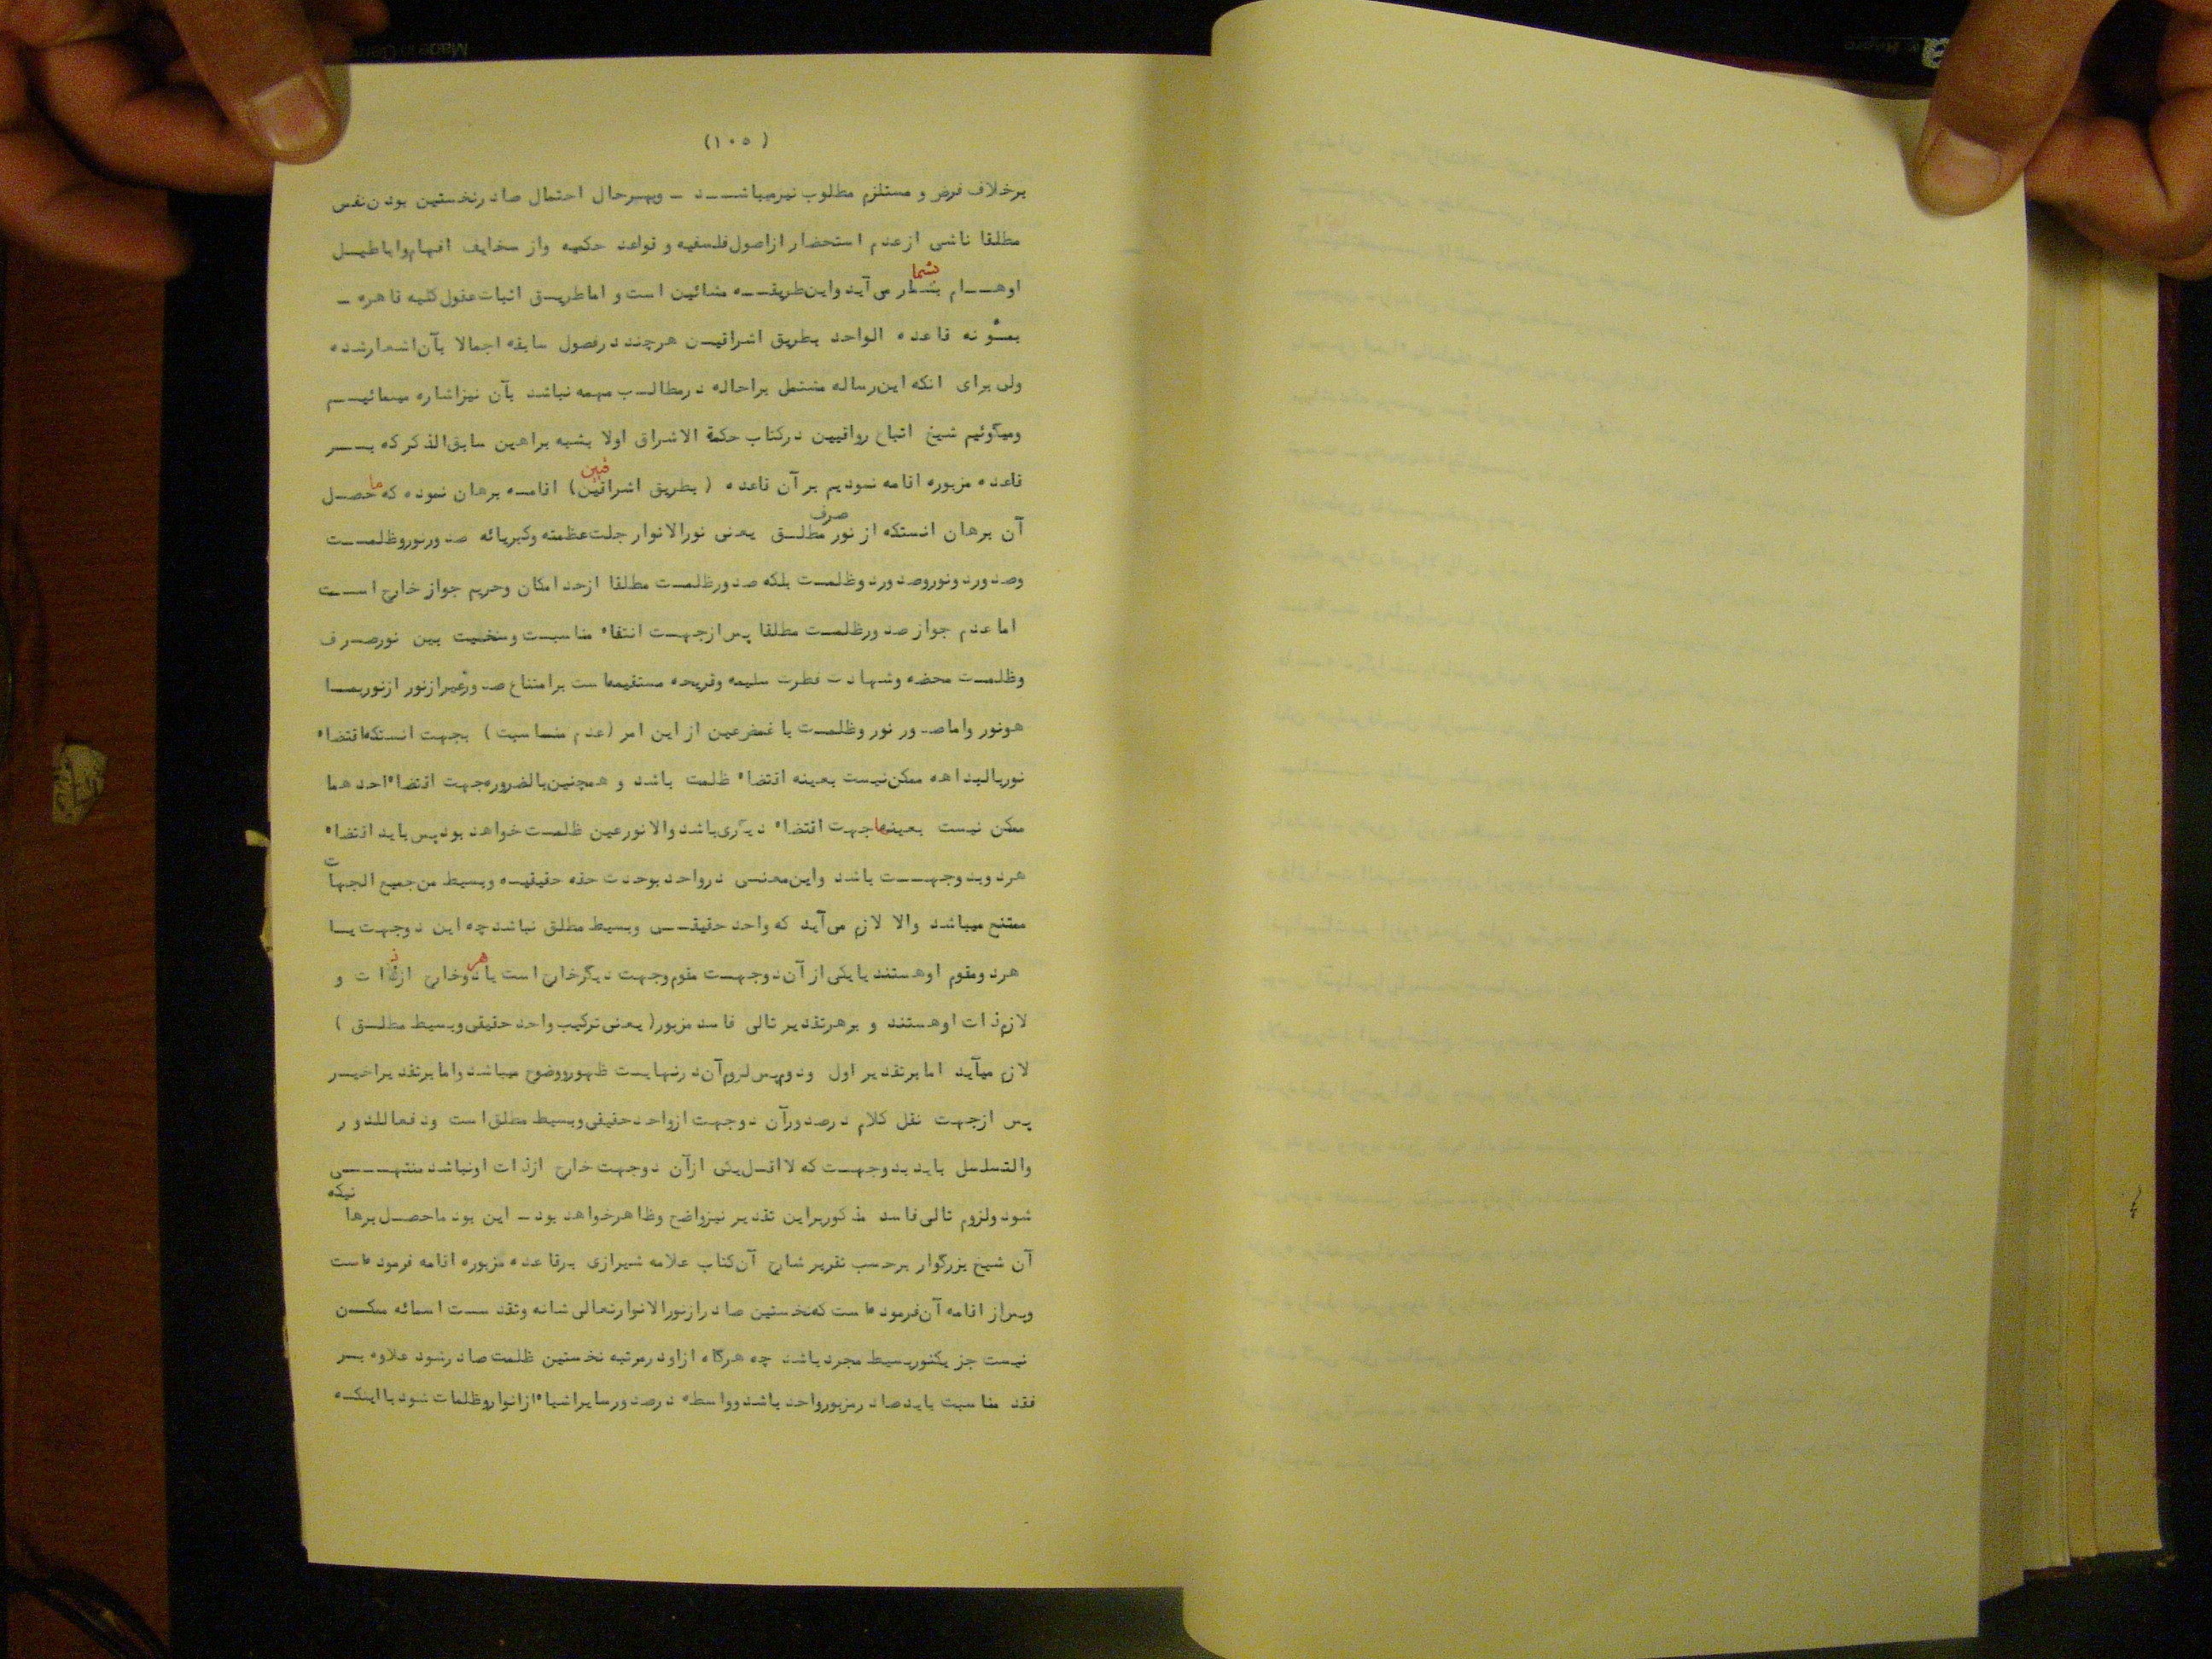 (۱۰۵)
برخلاف فرض و مستلزم مطلوب نیزمیباشد – وبهرحال احتمال صادرنخستین بودن نفس
مطلقا ناشی ازعدم استحضار ازاصول فلسفیه و قواعد حکمیه واز سخایف افهام واباطیل
اوهام بشمار می آید واین طریقه مشائین است و اما طریق اثبات عقول کلیه قاهره –
بمئونه قاعده الواحد بطریق اشراقین هرچند درفصول سابقه اجمالا بآن اشعارشده
ولی برای انکه این رساله مشتمل براحاله درمطالب مهمه نباشد بآن نیزاشاره مینمائیم
ومیگوئیم شیخ اتباع رواقیین درکتاب حکمة الاشراق اولا بشبه براهین سابق الذکر که بر
قاعده مزبوره اقامه نمودیم بر آن قاعده ( بطریق اشراقیین) اقامه برهان نموده که ماحصل
آن برهان انستکه از نور صرف مطلق یعنی نورالانوار جلت عظمته وکبریائه صدورنوروظلمت
وصدوردونوروصدوردوظلمت بلکه صدورظلمت مطلقا ازحد امکان وحریم جواز خارج است
اما عدم جواز صدورظلمت مطلقا پس ازجهت انتفاء مناسبت وسنخیت بین نورصرف
وظلمت محضه وشهادت فطرت سلیمه وقریحه مستقیمه است برامتناع صدورغیرازنور ازنوربما
هونور واما صدور نور وظلمت با غمض عین از این امر (عدم مناسبت) بجهت انستکه اقتضاء
نوربالبداهه ممکن نیست بعینه اقتضاء ظلمت باشد و همچنین بالضروره جهت اقتضاء احدهما
ممکن نیست بعینها جهت اقتضاء دیگری باشد والا نورعین ظلمت خواهد بود پس باید اقتضاء
هردوبدوجهت باشد واین معنی درواحد بوحدت حقه حقیقیه وبسیط من جمیع الجهات
ممتنع میباشد والا لازم می آید که واحد حقیقی وبسیط مطلق نباشد چه این دوجهت یا
هردومقوم اوهستند یا یکی از آن دوجهت مقوم وجهت دیگرخارج است یا هر دوخارج ازذات و
لازم ذات اوهستند و برهرتقدیر تالی فاسد مزبور( یعنی ترکیب واحد حقیقی وبسیط مطلق )
لازم میآید اما برتقدیر اول ودوم پس لزوم آن درنهایت ظهورووضوح میباشد واما برتقدیراخیر
پس ازجهت نقل کلام درصدورآن دوجهت ازواحد حقیقی وبسیط مطلق است ودفعاللدور
والتسلسل باید بدوجهت که لااقل یکی ازآن دوجهت خارج ازذات اونباشد منتهی
شود ولزوم تالی فاسد مذکوربراین تقدیر نیزواضح وظاهرخواهد بود – این بود ماحصل برهانیکه
آن شیخ بزرگوار برحسب تقریر شارح آن کتاب علامه شیرازی برقاعده مزبوره اقامه فرموده است
وپس از اقامه آن فرموده است که نخستین صادرازنورالانوارتعالی شانه وتقدست اسمائه ممکن
نیست جز یکنوربسیط مجرد باشد چه هرگاه ازاودرمرتبه نخستین ظلمت صادرشود علاوه بر
فقد مناسبت باید صادرمزبورواحد باشد وواسطه درصدورسایراشیاء ازانواروظلمات شود با اینکه